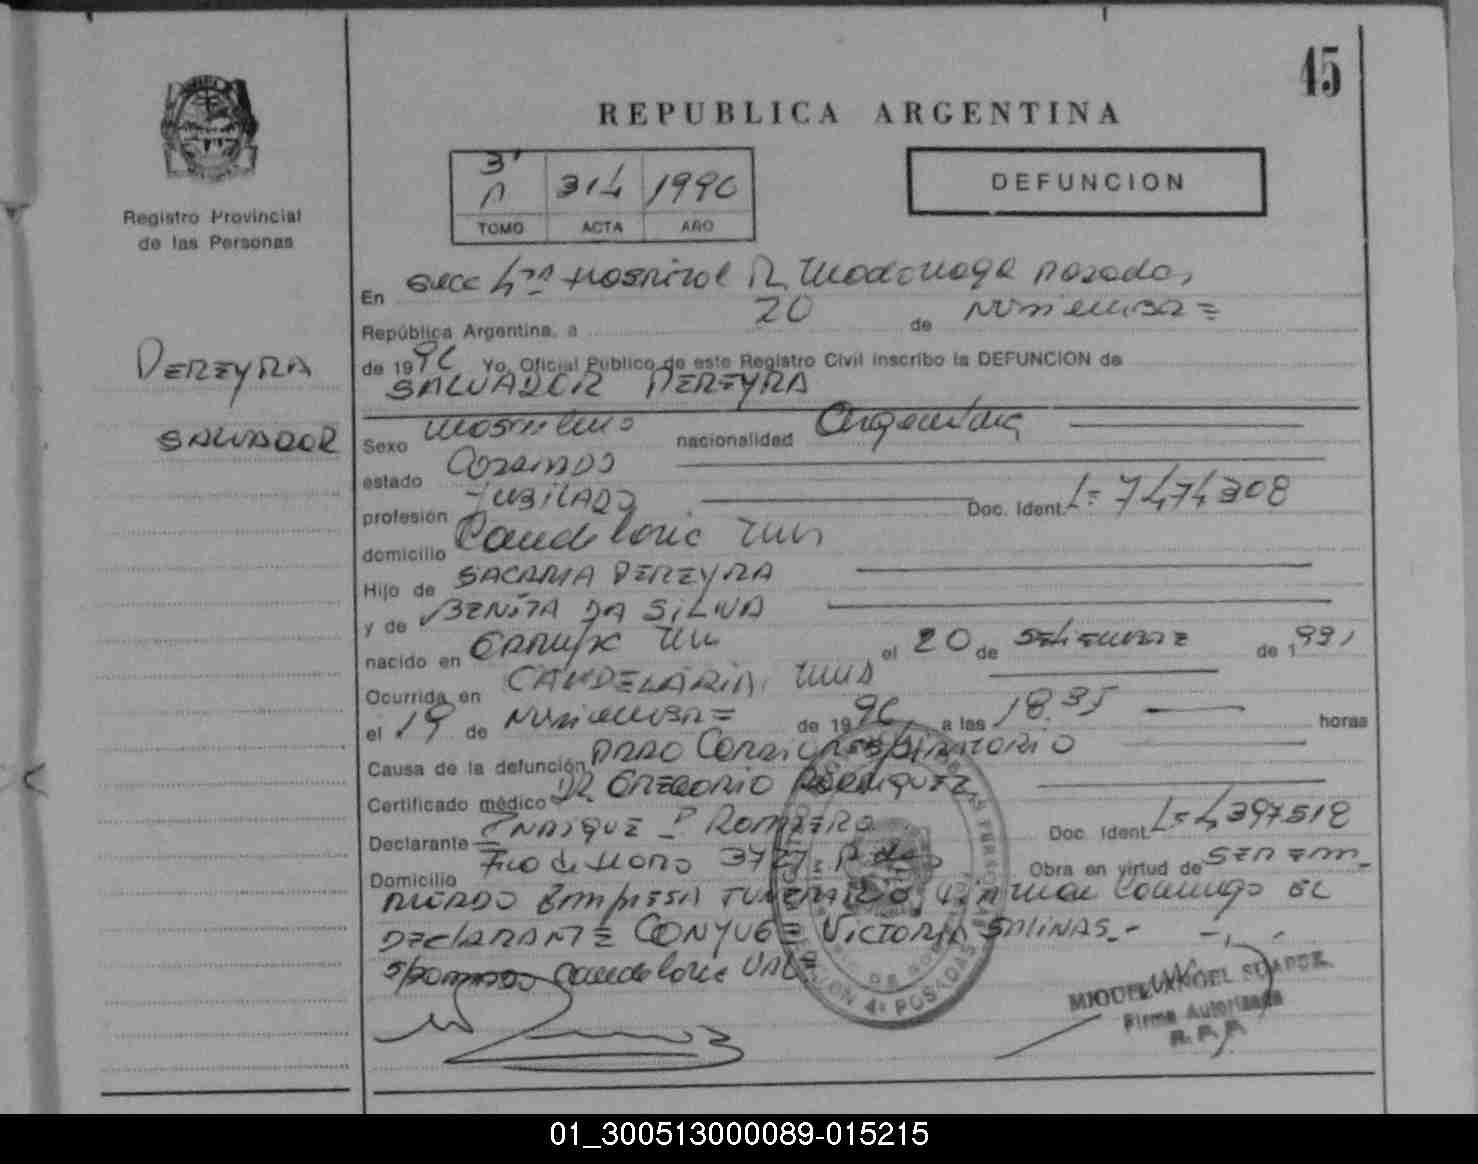 45
REPUBLICA ARGENTINA
3º A 314 1990
TOMO ACTA AÑO
DEFUNCION
Registro Provincial
de las Personas
PEREYRA
SALVADOR
En Secc 4ta Hospital R. Madariaga Posadas
República Argentina, a 20 de Noviembre
de 1990 Yo, Oficial Público de este Registro Civil inscribo la DEFUNCION de
SALVADOR PEREYRA
Sexo Masculino nacionalidad Argentina
estado Casado
profesión JUBILADO Doc. Ident. L= 7474308
domicilio Candelaria
Hijo de SACARIA PEREYRA
y de BENITA DA SILVA
nacido en el 20 de Setiembre de 1
Ocurrida en CANDELARIA,
el 19 de Noviembre de 1990, a las 18.35 horas
Causa de la defunción PARO CARDIORESPIRATORIO
Certificado médico DR GREGORIO RODRIGUEZ
Declarante ENRIQUE P ROMERO Doc. Ident. L= 4397518
Domicilio 3727 Obra en virtud de SER
EMPRESA FUNERARIO, EL
DECLARANTE CONYUGE VICTORIA SALINAS.-
Candelaria VALE
4ª POSADAS
MIGUEL ANGEL SUAREZ
Firma Autorizada
R. P. P.
01_300513000089-015215